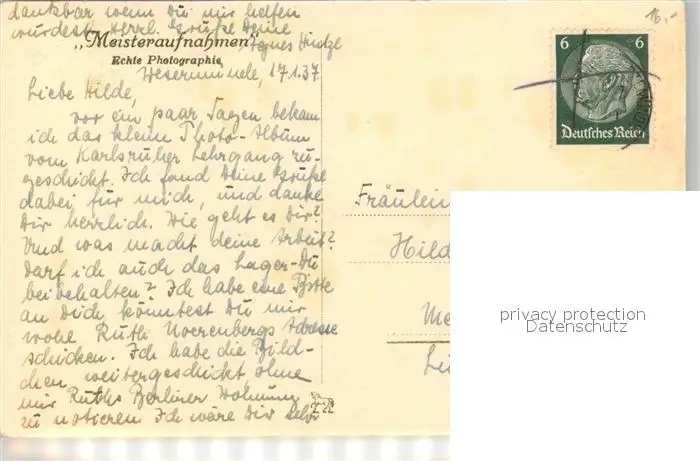 dankbar wenn Du mir helfen
würdest. Herzl. Grüße Deine
Agnes Hintze
„Meisteraufnahmen"
Echte Photographie
Wesermünde, 17.1.37.
Liebe Hilde,
vor ein paar Tagen bekam
ich das kleine Photo-Album
vom Karlsruher Lehrgang zu-
geschickt. Ich fand Deine Grüße
dabei für mich, und danke
Dir herzlich. Wie geht es Dir?
Und was macht deine Arbeit?
Darf ich auch das Lager-Du
beibehalten? Ich habe eine Bitte
an Dich könntest Du mir
wohl Ruth Noerenbergs Adresse
schicken. Ich habe die Bild-
chen weitergeschickt ohne
mir Ruths Berliner Wohnung
zu notieren Ich wäre Dir sehr
16,-
6 6
Deutsches Reich
Fräulein
Hild
privacy protection
Datenschutz